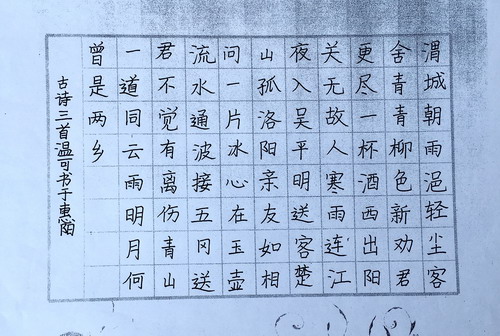 渭城朝雨浥轻尘客
舍青青柳色新劝君
更尽一杯酒西出阳
关无故人寒雨连江
夜入吴平明送客楚
山孤洛阳亲友如相
问一片冰心在玉壶
流水通波接五冈送
君不觉有离伤青山
一道同云雨明月何
曾是两乡
古诗三首温可书于惠阳